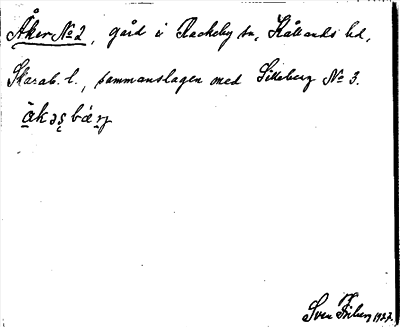 Åker No 2, gård i Rackeby sn, Kållands hd,
Skarab. l., sammanslagen med Silleberg No 3.
åkəsbærj
Sven 1927.